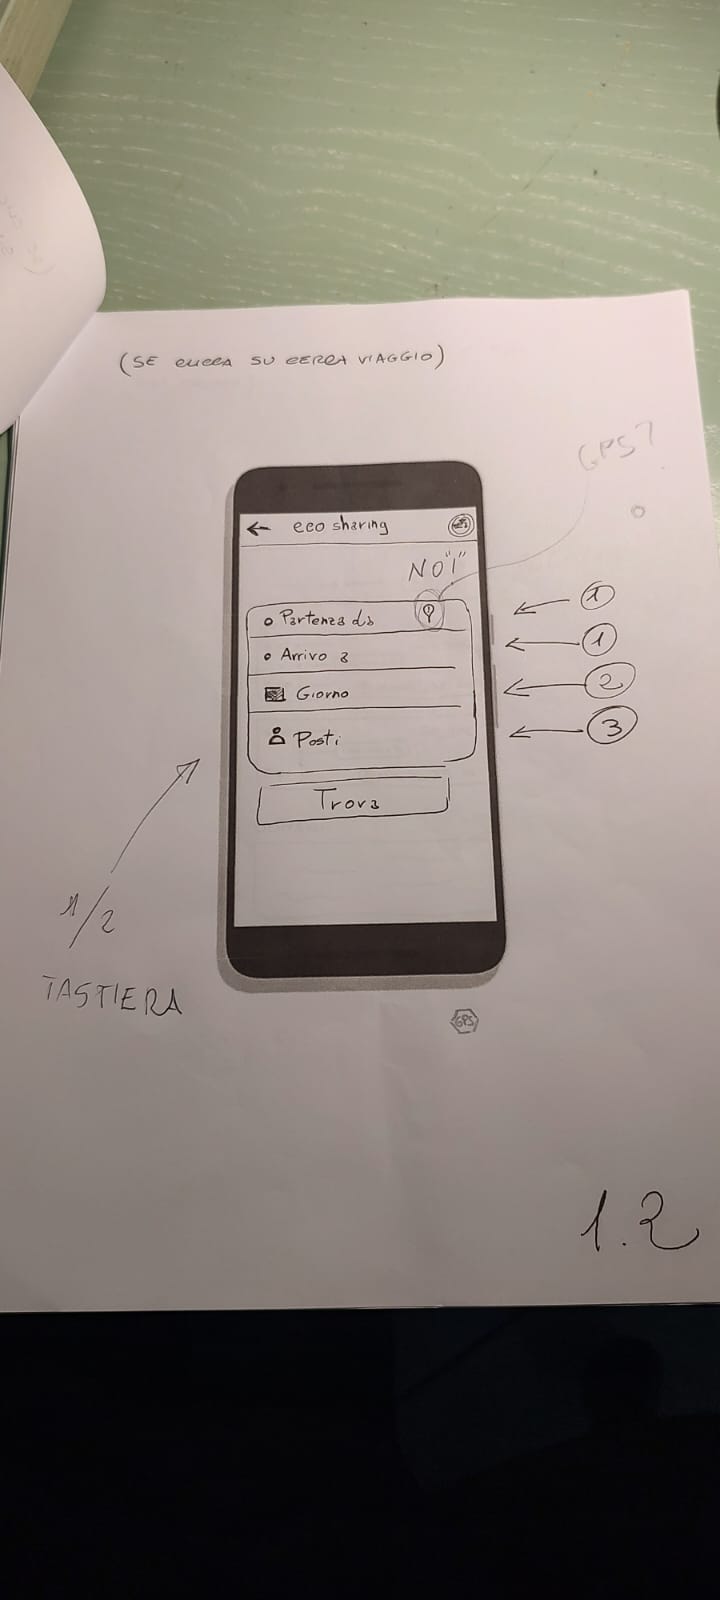 (SE CLICCA SU CERCA VIAGGIO)
GPS?
← eco sharing
NO "1"
Partenza da
1
Arrivo a
1
Giorno
2
Posti
3
Trova
1/2
TASTIERA
GPS
1.2